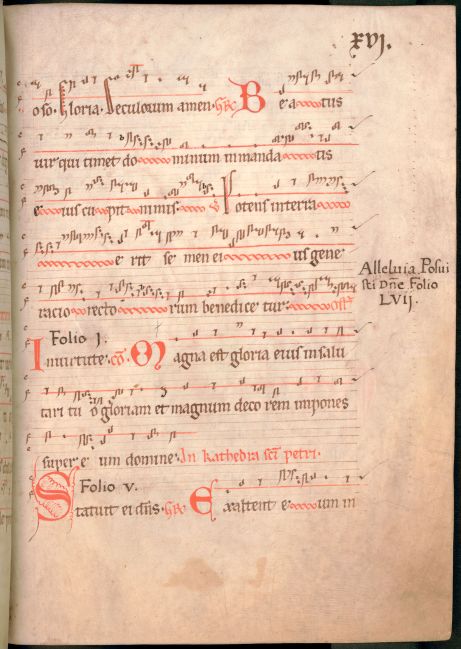 xvj.
o so. Gloria. Seculorum amen. Gr. Be a tus
uir qui timet do minum in manda tis
e ius cu pit nimis. v Potens in terra
e rit se men ei us gene
racio recto rum benedice tur. Off.
Folio j.
In uirtute. co. Magna est gloria eius in salu
tari tu o gloriam et magnum deco rem impones
super e um domine. In kathedra sci petri.
Folio v.
Statuit ei dns. Gr. Exaltent e um in
Alleluia Posui
sti Dne Folio
LVIJ.